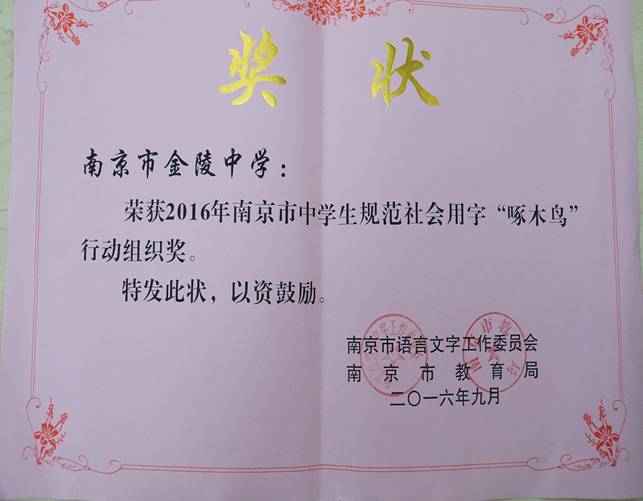 奖状
南京市金陵中学：
荣获2016年南京市中学生规范社会用字“啄木鸟”
行动组织奖。
特发此状，以资鼓励。
南京市语言文字工作委员会
南京市教育局
二〇一六年九月